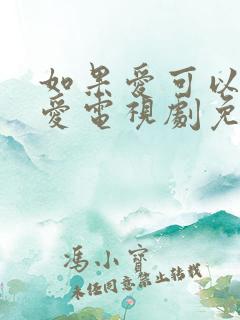 如果愛可以
愛電視劇免
馮小寶
未经同意禁止转载